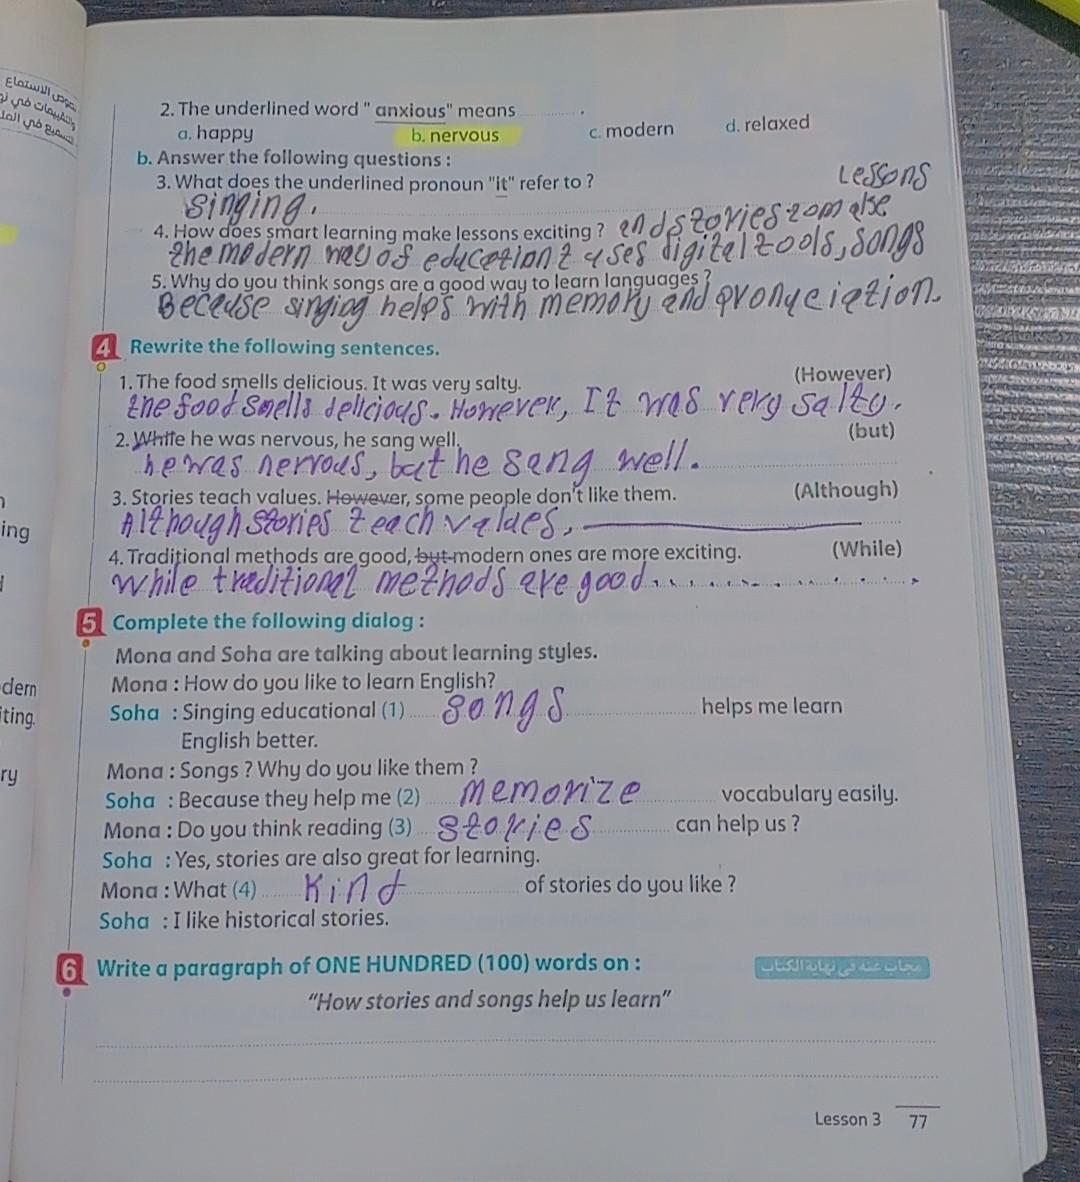 نصوص الاستماع
2. The underlined word " anxious" means ............ .
a. happy b. nervous c. modern d. relaxed
b. Answer the following questions :
3. What does the underlined pronoun "it" refer to ?
singing.
4. How does smart learning make lessons exciting ?
the modern way of education t uses digital tools, songs
and stories to make
Lessons
5. Why do you think songs are a good way to learn languages ?
Because singing helps with memory and pronuciation.
4 Rewrite the following sentences.
1. The food smells delicious. It was very salty. (However)
the food smells delicious. However, It was very salty.
2. While he was nervous, he sang well. (but)
he was nervous, but he sang well.
3. Stories teach values. However, some people don't like them. (Although)
Although stories teach values,
4. Traditional methods are good, but modern ones are more exciting. (While)
While traditional methods are good
5 Complete the following dialog :
Mona and Soha are talking about learning styles.
Mona : How do you like to learn English?
Soha : Singing educational (1) songs helps me learn
English better.
Mona : Songs ? Why do you like them ?
Soha : Because they help me (2) memorize vocabulary easily.
Mona : Do you think reading (3) stories can help us ?
Soha : Yes, stories are also great for learning.
Mona : What (4) Kind of stories do you like ?
Soha : I like historical stories.
6 Write a paragraph of ONE HUNDRED (100) words on : مجاب عنه في نهاية الكتاب
"How stories and songs help us learn"
Lesson 3 77
ing
dern
iting.
ry